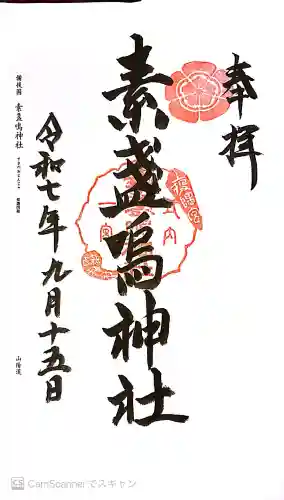 奉拝
素盞嗚神社
令和七年九月十五日
備後国 素盞嗚神社
山陽道
CS CamScannerでスキャン